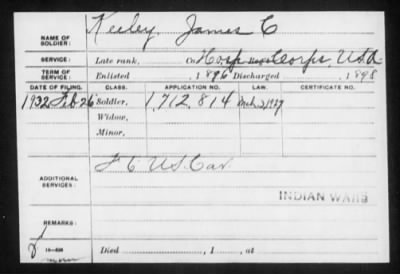 NAME OF SOLDIER: Keeley, James C
SERVICE: Late rank, Co. Hosp Corps, U.S.A.
TERM OF SERVICE: Enlisted , 1896 Discharged , 1898
DATE OF FILING. CLASS. APPLICATION NO. LAW. CERTIFICATE NO.
1932 Feb 26 Soldier, 1,712,814 Mch 3, 1927
Widow,
Minor,
ADDITIONAL SERVICES: F 6 U.S. Cav.
INDIAN WARS
REMARKS:
Died , 1 , at